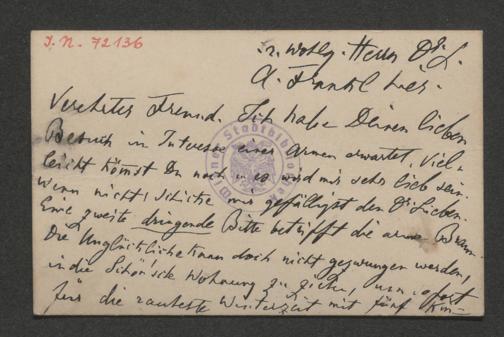 I. N. 72136
Sr. Wohlg. Herrn Dr. L.
A. Frankl hier.
Verehrter Freund. Ich habe Deinen lieben
Besuch im Interesse einer Armen erwartet. Viel-
leicht kömst Du noch u es wird mir sehr lieb sein.
Wenn nicht, schicke mir gefälligst den Dr
Eine zweite dringende Bitte betrifft die arme
Die Unglückliche kann doch nicht gezwungen werden,
in die Wohnung zu ziehen, um
für die rauheste Winterzeit mit fünf
Wiener Stadtbibliothek